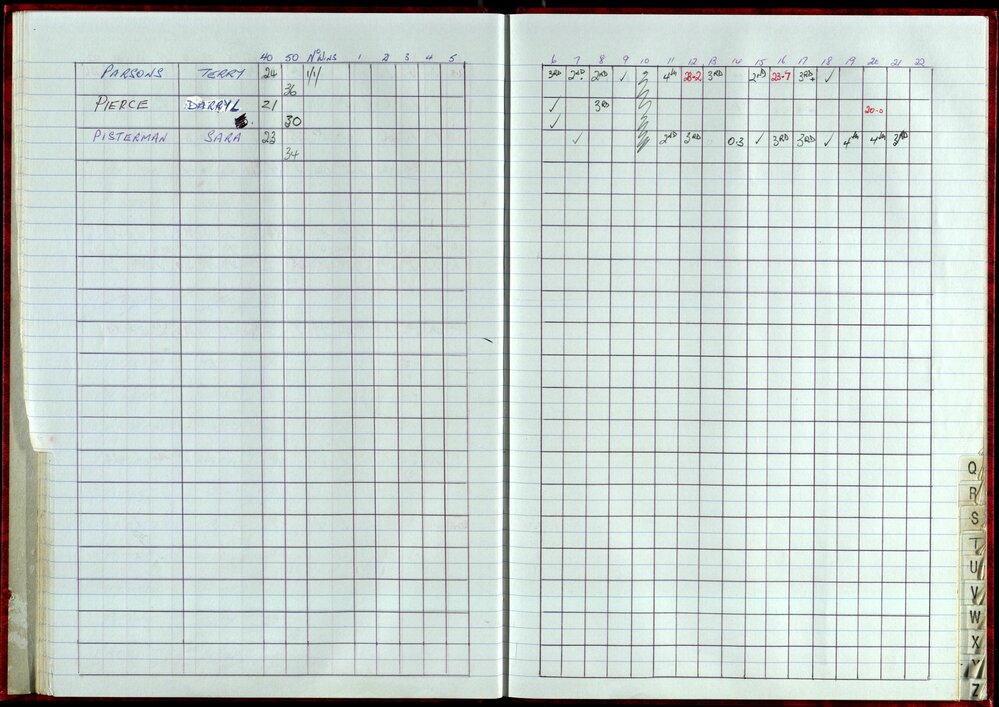 40 50 Nº WNS 1 2 3 4 5 6 7 8 9 10 11 12 13 14 15 16 17 18 19 20 21 22
PARSONS TERRY 24 1/1/ 3RD 2ND 2ND ✓ 4th 23-2 3RD 2ND 23-7 3RD ✓
36
PIERCE DARRYL 21 ✓ 3RD 20-0
30 ✓
PISTERMAN SARA 23 ✓ 2ND 3RD 0-3 ✓ 3RD 3RD ✓ 4th 4th 3RD
34
Q
R
S
T
U
V
W
X
Y
Z